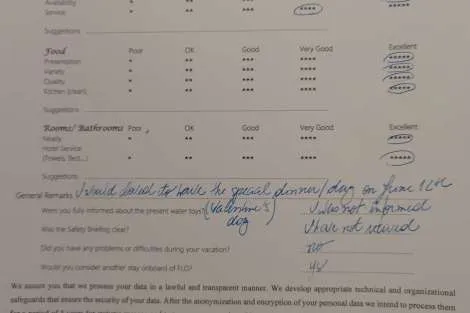 Availability * ** *** **** *****
Service * ** *** **** *****
Suggestions
Food Poor OK Good Very Good Excellent
Presentation * ** *** **** *****
Variety * ** *** **** *****
Quality * ** *** **** *****
Kitchen (clean) * ** *** **** *****
Suggestions
Rooms/ Bathrooms Poor OK Good Very Good Excellent
Ready * ** *** **** *****
Hotel Service
(Towels, Bed,...) * ** *** **** *****
Suggestions
General Remarks to have the special dinner/day on June 12th
(Valentine's day)
Were you fully informed about the present water toys? I was not informed
Was the Safety Briefing clear? I have not
Did you have any problems or difficulties during your vacation? no
Would you consider another stay onboard of yes
We assure you that we process your data in a lawful and transparent manner. We develop appropriate technical and organizational
safeguards that ensure the security of your data. After the anonymization and encryption of your personal data we intend to process them
for a period of